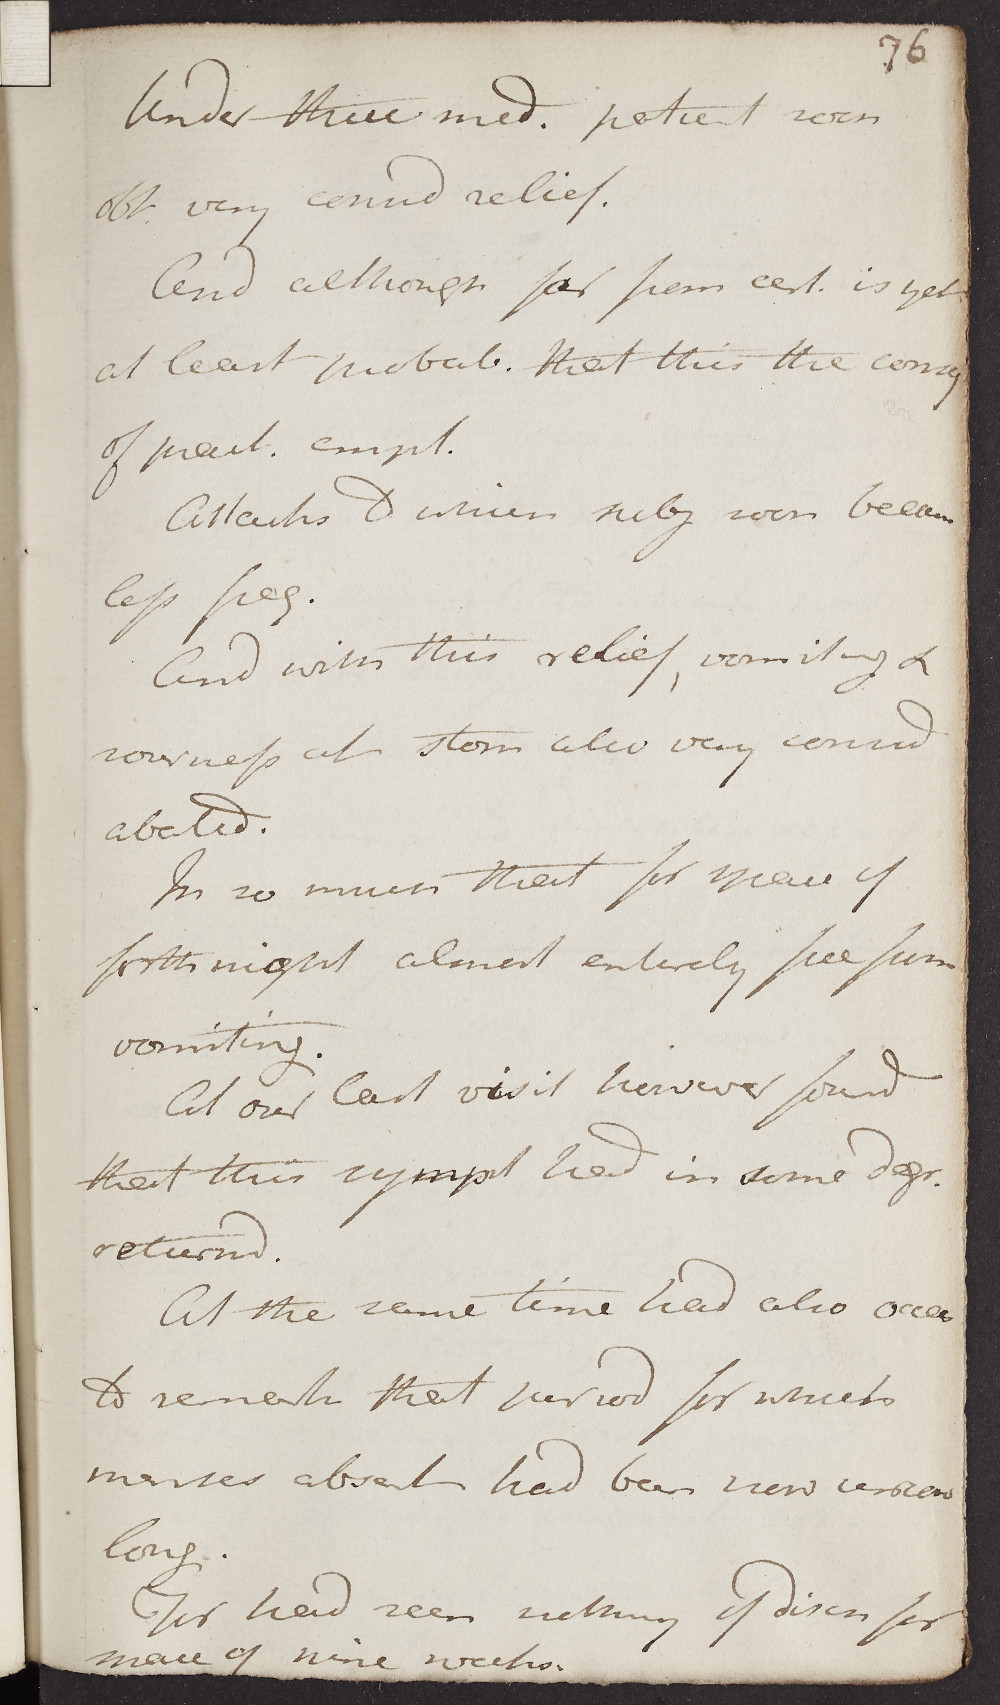 76
Under these med. patient soon
obt. very consid relief.
And although far from cert. is yet
at least probab. that this the conseq
of pract. empl.
Attacks to which subj soon becam
less freq.
And with this relief, vomiting &
sourness at stom also very consid
abated.
In so much that for space of
forthnight almost entirely free from
vomiting.
At our last visit however found
that this sympt had in some degr.
returnd.
At the same time had also occas
to remark that period for which
menses absent had been now uncom
long.
For had seen nothing of disch for
space of nine weeks.